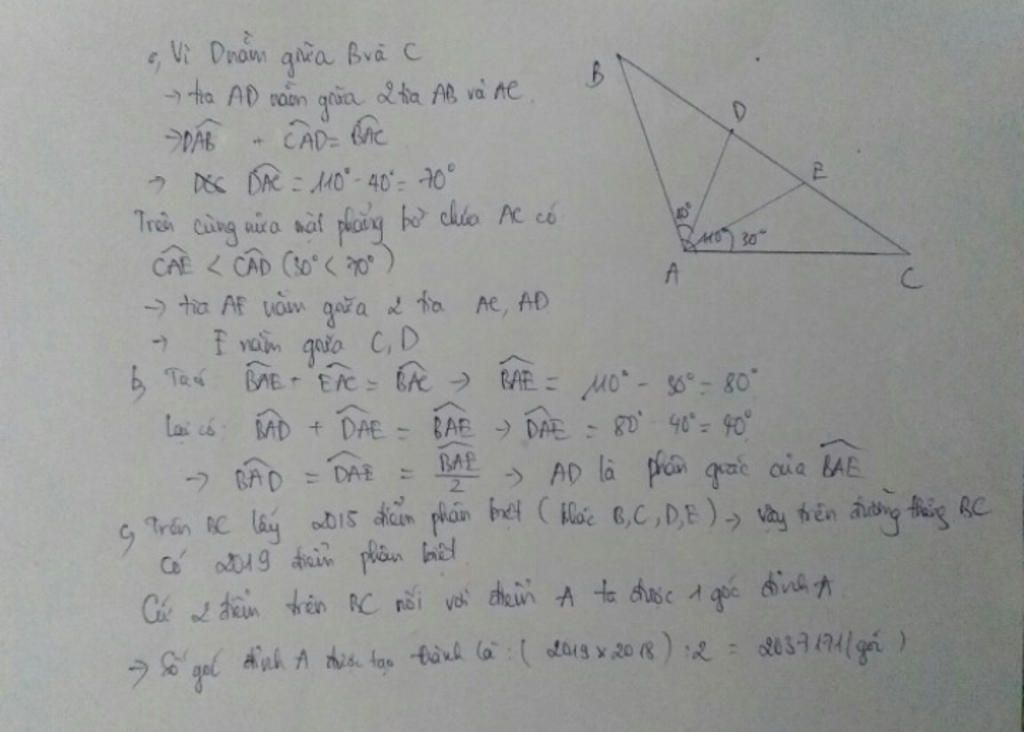 a, Vì D nằm giữa B và C
→ tia AD nằm giữa 2 tia AB và AC.
→ DAB + CAD = BAC
→ DAC = 110° - 40° = 70°
Trên cùng nửa mặt phẳng bờ chứa AC có
CAE < CAD (30° < 70°)
→ tia AE nằm giữa 2 tia AC, AD
→ E nằm giữa C, D
b, Ta có BAE + EAC = BAC → BAE = 110° - 30° = 80°
Lại có BAD + DAE = BAE → DAE = 80° - 40° = 40°
→ BAD = DAE = BAE/2 → AD là phân giác của BAE
c, Trên BC lấy 2015 điểm phân biệt (khác B, C, D, E) → vậy trên đường thẳng BC
có 2019 điểm phân biệt
Cứ 2 điểm trên BC nối với điểm A ta được 1 góc đỉnh A
→ Số góc đỉnh A được tạo thành là: (2019 x 2018) : 2 = 2037171 (góc)
B
D
E
110° 30°
A
C